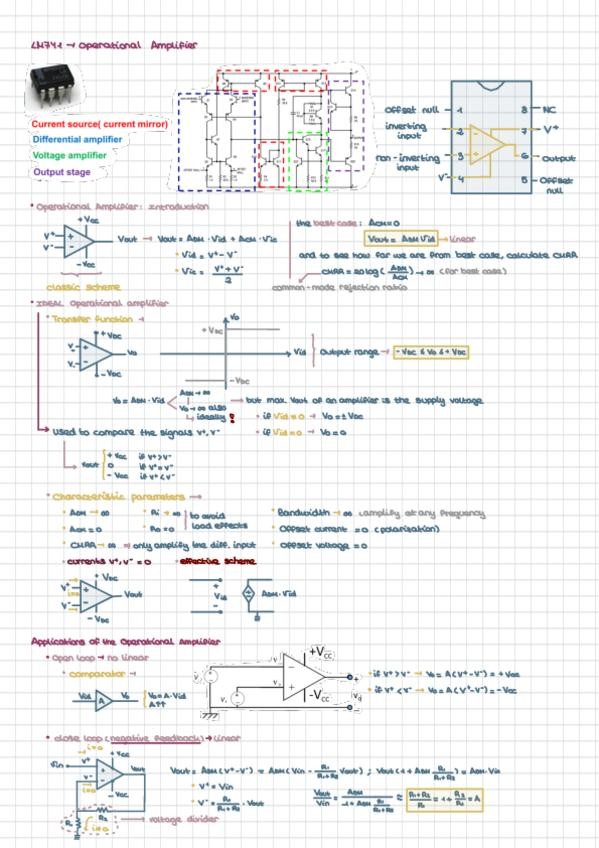 LM741 → Operational Amplifier
Current source( current mirror)
Differential amplifier
Voltage amplifier
Output stage
Offset null - 1
8 - NC
inverting input - 2
7 - V+
non-inverting input - 3
6 - Output
V- - 4
5 - Offset null
• Operational Amplifier: Introduction
the best case: Acm=0
+Vcc
V+
V-
-Vcc
Vout → Vout = ADM · Vid + ACM · Vic
Vout = ADM Vid → linear
• Vid = V+ - V-
and to see how far we are from best case, calculate CMRR
• Vic = V+ + V- / 2
CMRR = 20log(ADM/ACM) → ∞ (for best case)
classic scheme
common-mode rejection ratio
• IDEAL Operational amplifier
• Transfer function →
+Vcc
-Vcc
Vo
Vid
Output range → -Vcc ≤ Vo ≤ +Vcc
Vo = ADM · Vid
ADM → ∞
Vo → ∞ also
ideally!
→ but max. Vout of an amplifier is the supply voltage
• if Vid≠0 → Vo=±Vcc
Used to compare the signals V+, V-
• if Vid=0 → Vo=0
Vout
+Vcc if V+>V-
0 if V+=V-
-Vcc if V+<V-
• Characteristic parameters →
• ADM → ∞
• Ri → ∞
to avoid load effects
• Bandwidth → ∞ (amplify at any frequency
• ACM = 0
• Ro = 0
• Offset current = 0 (polarization)
• CMRR → ∞ ⇒ only amplify the diff. input
• Offset voltage = 0
• currents V+, V- = 0
• effective scheme
+Vcc
V+
i=0
V-
Vout
-Vcc
+
Vid
-
ADM · Vid
Applications of the Operational Amplifier
• Open loop → no linear
• comparator →
Vid
A
Vo
Vo=A·Vid
A↑↑
+VCC
-VCC
• if V+>V- → Vo = A(V+-V-) = +Vcc
• if V+<V- → Vo = A(V+-V-) = -Vcc
• close loop (negative feedback) → linear
i=0
+Vcc
Vin
V+
V-
Vout
-Vcc
Vout = ADM(V+-V-) = ADM(Vin - R1/(R1+R2) Vout) ; Vout(1+ADM R1/(R1+R2)) = ADM·Vin
• V+ = Vin
• V- = R1/(R1+R2) · Vout
Vout/Vin = ADM/(1+ADM R1/(R1+R2)) ≈ (R1+R2)/R1 = 1 + R2/R1 = A
R1
R2
i=0
→ voltage divider